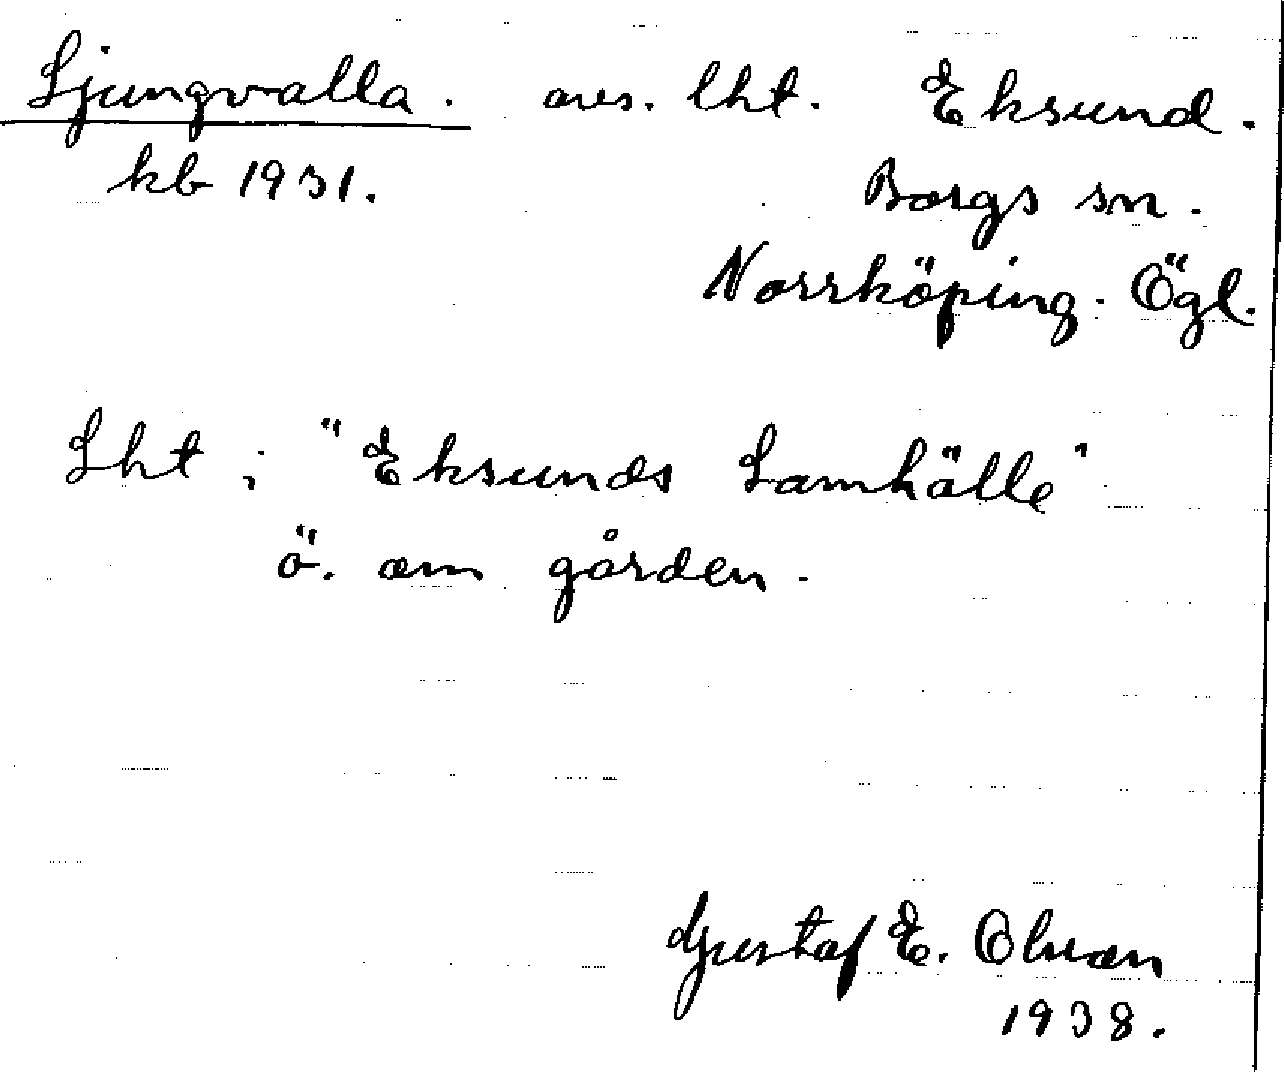 Ljungvalla. avs. lht. Eksund.
kb 1931. Borgs sn.
Norrköping. Ögl.
Lht i "Eksunds Samhälle"
ö. om gården.
Gustaf E. Olson
1938.